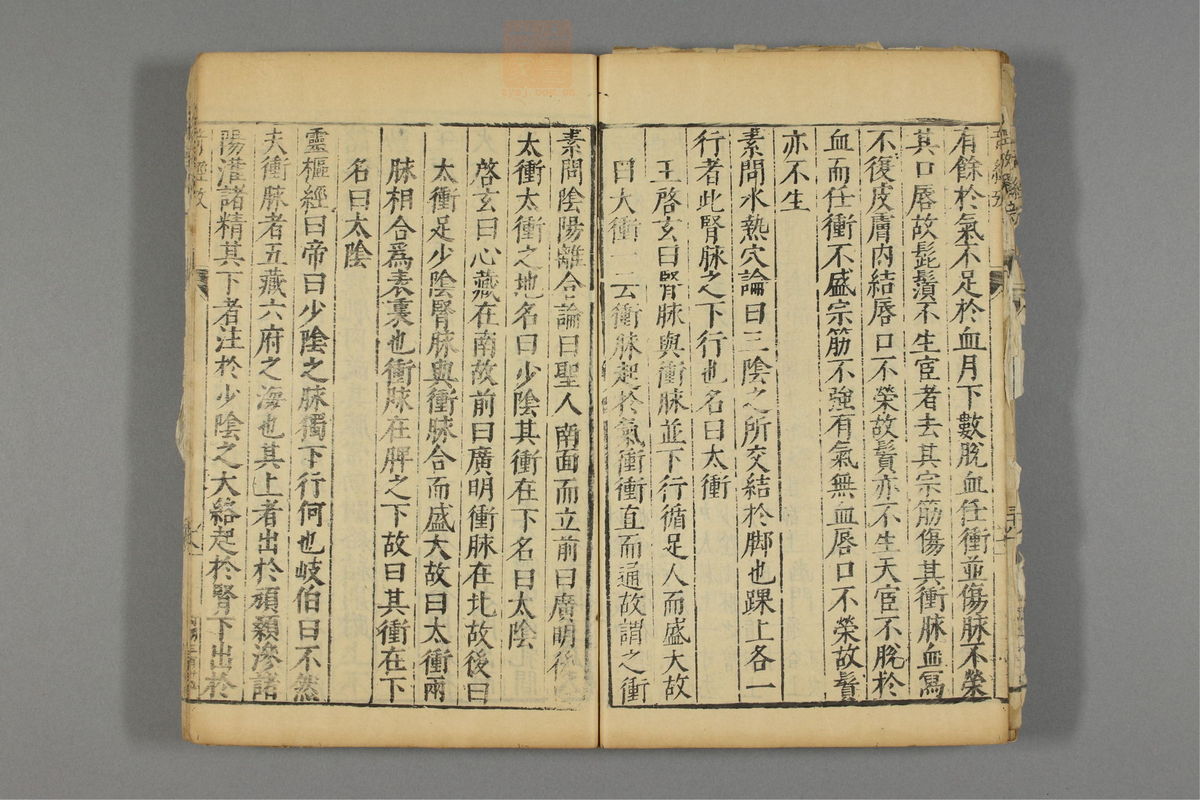 有餘於氣不足於血月下數脫血任衝並傷脉不榮
其口唇故髭鬚不生宦者去其宗筋傷其衝脉血寫
不復皮膚內結唇口不榮故鬚亦不生天宦不脫於
血而任衝不盛宗筋不強有氣無血唇口不榮故鬚
亦不生
素問水熱穴論曰三陰之所交結於脚也踝上各一
行者此腎脉之下行也名曰太衝
王啓玄曰腎脉與衝脉並下行循足人而盛大故
曰大衝一云衝脉起於氣衝衝直而通故謂之衝
素問陰陽離合論曰聖人南面而立前曰廣明後
太衝太衝之地名曰少陰其衝在下名曰太陰
啓玄曰心藏在南故前曰廣明衝脉在北故後曰
太衝足少陰腎脉與衝脉合而盛大故曰太衝兩
脉相合爲表裏也衝脉在脾之下故曰其衝在下
名曰太陰
靈樞經曰帝曰少陰之脉獨下行何也岐伯曰不然
夫衝脉者五藏六府之海也其上者出於頏顙滲諸
陽灌諸精其下者注於少陰之大絡起於腎下出於